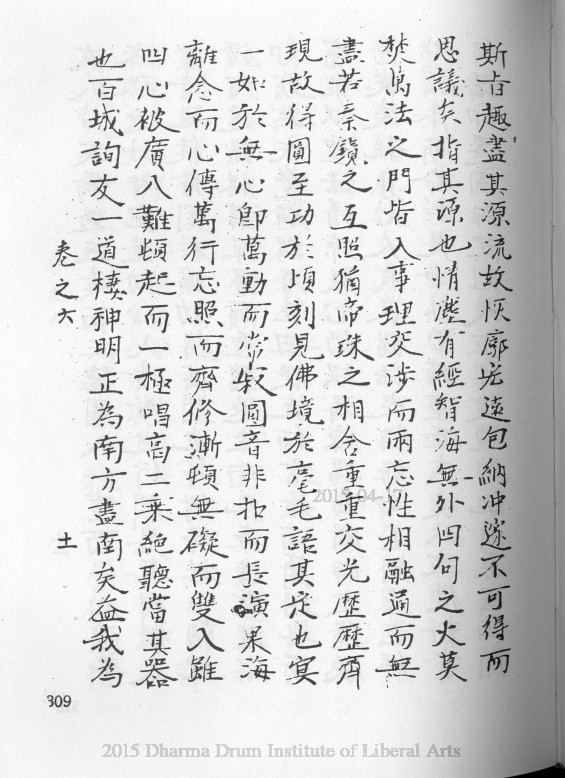 斯旨趣盡其源流故恢廓宏遠包納冲邃不可得而
思議矣指其源也情塵有經智海無外四句之火莫
焚萬法之門皆入事理交涉而兩忘性相融通而無
盡若秦鏡之互照猶帝珠之相含重重交光歷歷齊
現故得圓至功於頃刻見佛境於毫毛語其定也寂
一如於無心即萬動而常寂圓音非扣而長演果海
離念而心傳萬行忘照而齊修漸頓無礙而雙入雖
四心被廣八難頓起而一極唱高二乘絕聽當其器
也百城詢友一道棲神明正為南方盡南矣益我為
卷之六
十一
309
2015-04-17
2015 Dharma Drum Institute of Liberal Arts